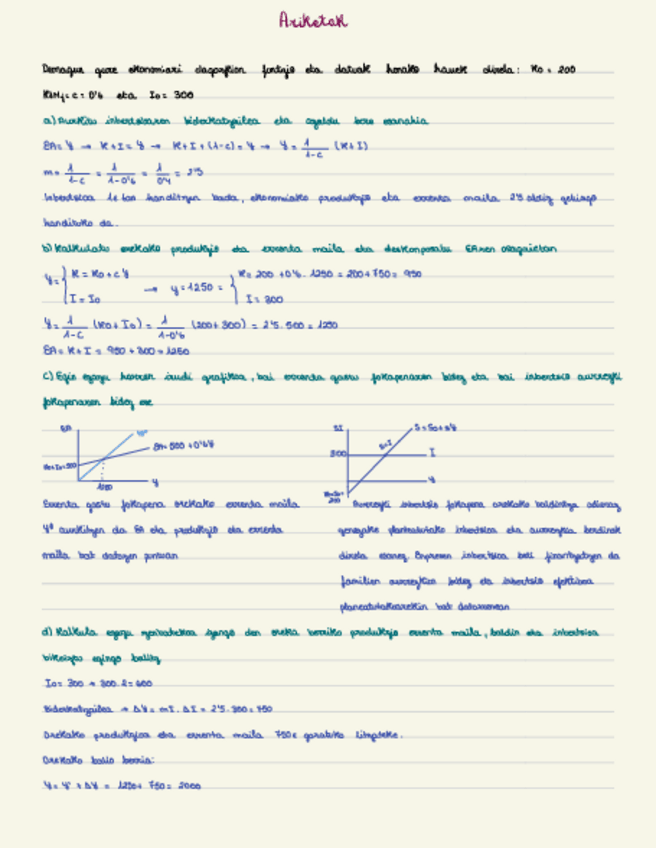 Ariketak
Demagun gure ekonomiari dagozkion funtzio eta datuak honako hauek direla: Ko = 200
KMg = c = 0'6 eta Io = 300
a) Aurkitu inbertsioaren biderkatzailea eta azaldu bere esanahia
EA = Y → K + I = Y → K + I + (1-c) = Y → Y = 1/1-c (K+I)
m = 1/1-c = 1/1-0'6 = 1/0'4 = 2'5
Inbertsioa 1€ tan handitzen bada, ekonomiako produkzio eta errenta maila 2'5 aldiz gehiago
handituko da.
b) Kalkulatu orekako produkzio eta errenta maila eta deskonposatu EAren osagaietan
Y = { K = Ko + cY → Y = 1250 = { K = 200 + 0'6 · 1250 = 200 + 750 = 950
I = Io I = 300
Y = 1/1-c (Ko + Io) = 1/1-0'6 (200 + 300) = 2'5 · 500 = 1250
EA = K + I = 950 + 300 = 1250
c) Egin ezazu horren irudi grafikoa, bai errenta gastu fokapenaren bidez eta bai inbertsio aurrezki
fokapenaren bidez ere
EA 45º EA = 500 + 0'6Y Ko + Io = 500 1250 Y
S,I S = So + sY S = I 300 I Y
Errenta gastu fokapena orekako errenta maila
Yº aurkitzen da EA eta produkzio eta errenta
maila bat datozen puntuan
Aurrezki inbertsio fokapena orekako baldintza adieraz
genezake planteatutako inbertsioa eta aurrezkia berdinak
direla esanez. Enpresen inbertsioa beti finantzatzen da
familien aurrezkien bidez eta inbertsio efektiboa
planeatutakoarekin bat datorrenean
d) Kalkula ezazu zenbatekoa izango den oreka berriko produkzio errenta maila, baldin eta inbertsioa
bikoiztu egingo balitz
Io = 300 → 300 · 2 = 600
Biderkatzailea → ΔY = mI · ΔI = 2'5 · 300 = 750
Orekako produkzioa eta errenta maila 750€ garatuko litzateke.
Orekako balio berria:
Y = Yº + ΔY = 1250 + 750 = 2000